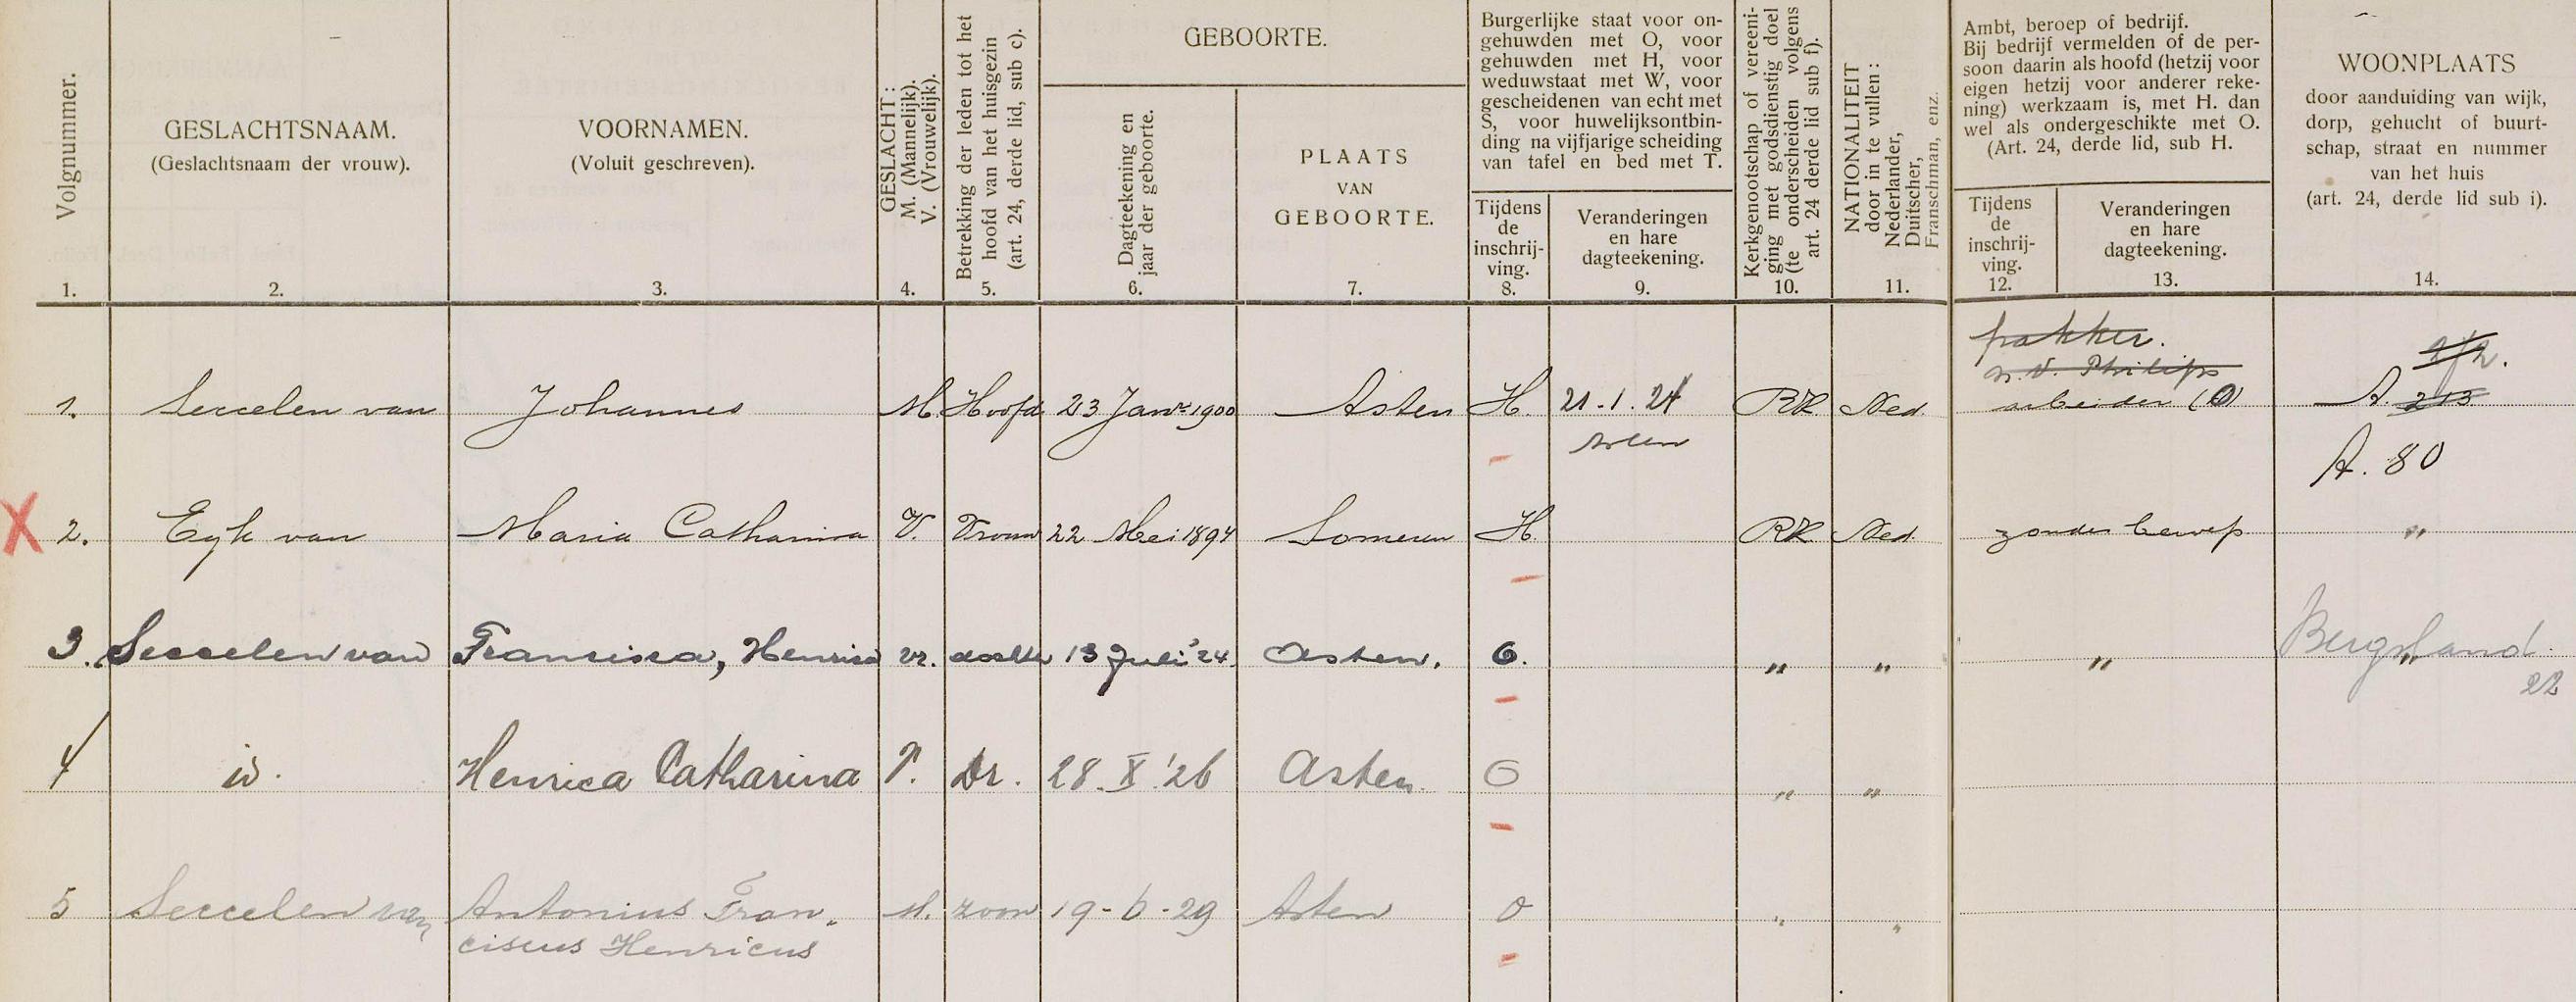 Volgnummer.
1.
GESLACHTSNAAM.
(Geslachtsnaam der vrouw).
2.
VOORNAMEN.
(Voluit geschreven).
3.
GESLACHT:
M. (Mannelijk).
V. (Vrouwelijk).
4.
Betrekking der leden tot het
hoofd van het huisgezin
(art. 24, derde lid, sub c).
5.
GEBOORTE.
Dagteekening en
jaar der geboorte.
6.
PLAATS
VAN
GEBOORTE.
7.
Burgerlijke staat voor on-
gehuwden met O, voor
gehuwden met H, voor
weduwstaat met W, voor
gescheidenen van echt met
S, voor huwelijksontbin-
ding na vijfjarige scheiding
van tafel en bed met T.
Tijdens
de
inschrij-
ving.
8.
Veranderingen
en hare
dagteekening.
9.
Kerkgenootschap of vereeni-
ging met godsdienstig doel
(te onderscheiden volgens
art. 24 derde lid sub f).
10.
NATIONALITEIT
door in te vullen:
Nederlander,
Duitscher,
Franschman, enz.
11.
Ambt, beroep of bedrijf.
Bij bedrijf vermelden of de per-
soon daarin als hoofd (hetzij voor
eigen hetzij voor anderer reke-
ning) werkzaam is, met H. dan
wel als ondergeschikte met O.
(Art. 24, derde lid, sub H.
Tijdens
de
inschrij-
ving.
12.
Veranderingen
en hare
dagteekening.
13.
WOONPLAATS
door aanduiding van wijk,
dorp, gehucht of buurt-
schap, straat en nummer
van het huis
(art. 24, derde lid sub i).
14.
pakker.
N.V. Philips
1. Seccelen van Johannes M. Hoofd 23 Janr 1900 Asten H. 21.1.24 RK Ned. arbeider (O) A. 213
Asten
A. 80
X 2. Eyk van Maria Catharina V. Vrouw 22 Mei 1894 Someren H RK Ned. zonder beroep "
3. Seccelen van Francisca, Henrica vr. dochter 13 Juli '24. Asten. O. " " " "
Bergsland.
22
4 id. Henrica Catharina V. Dr. 28.X.'26 Asten. O " "
5 Seccelen van Antonius Fran-
ciscus Henricus
M. zoon 19-6-29 Asten O " "